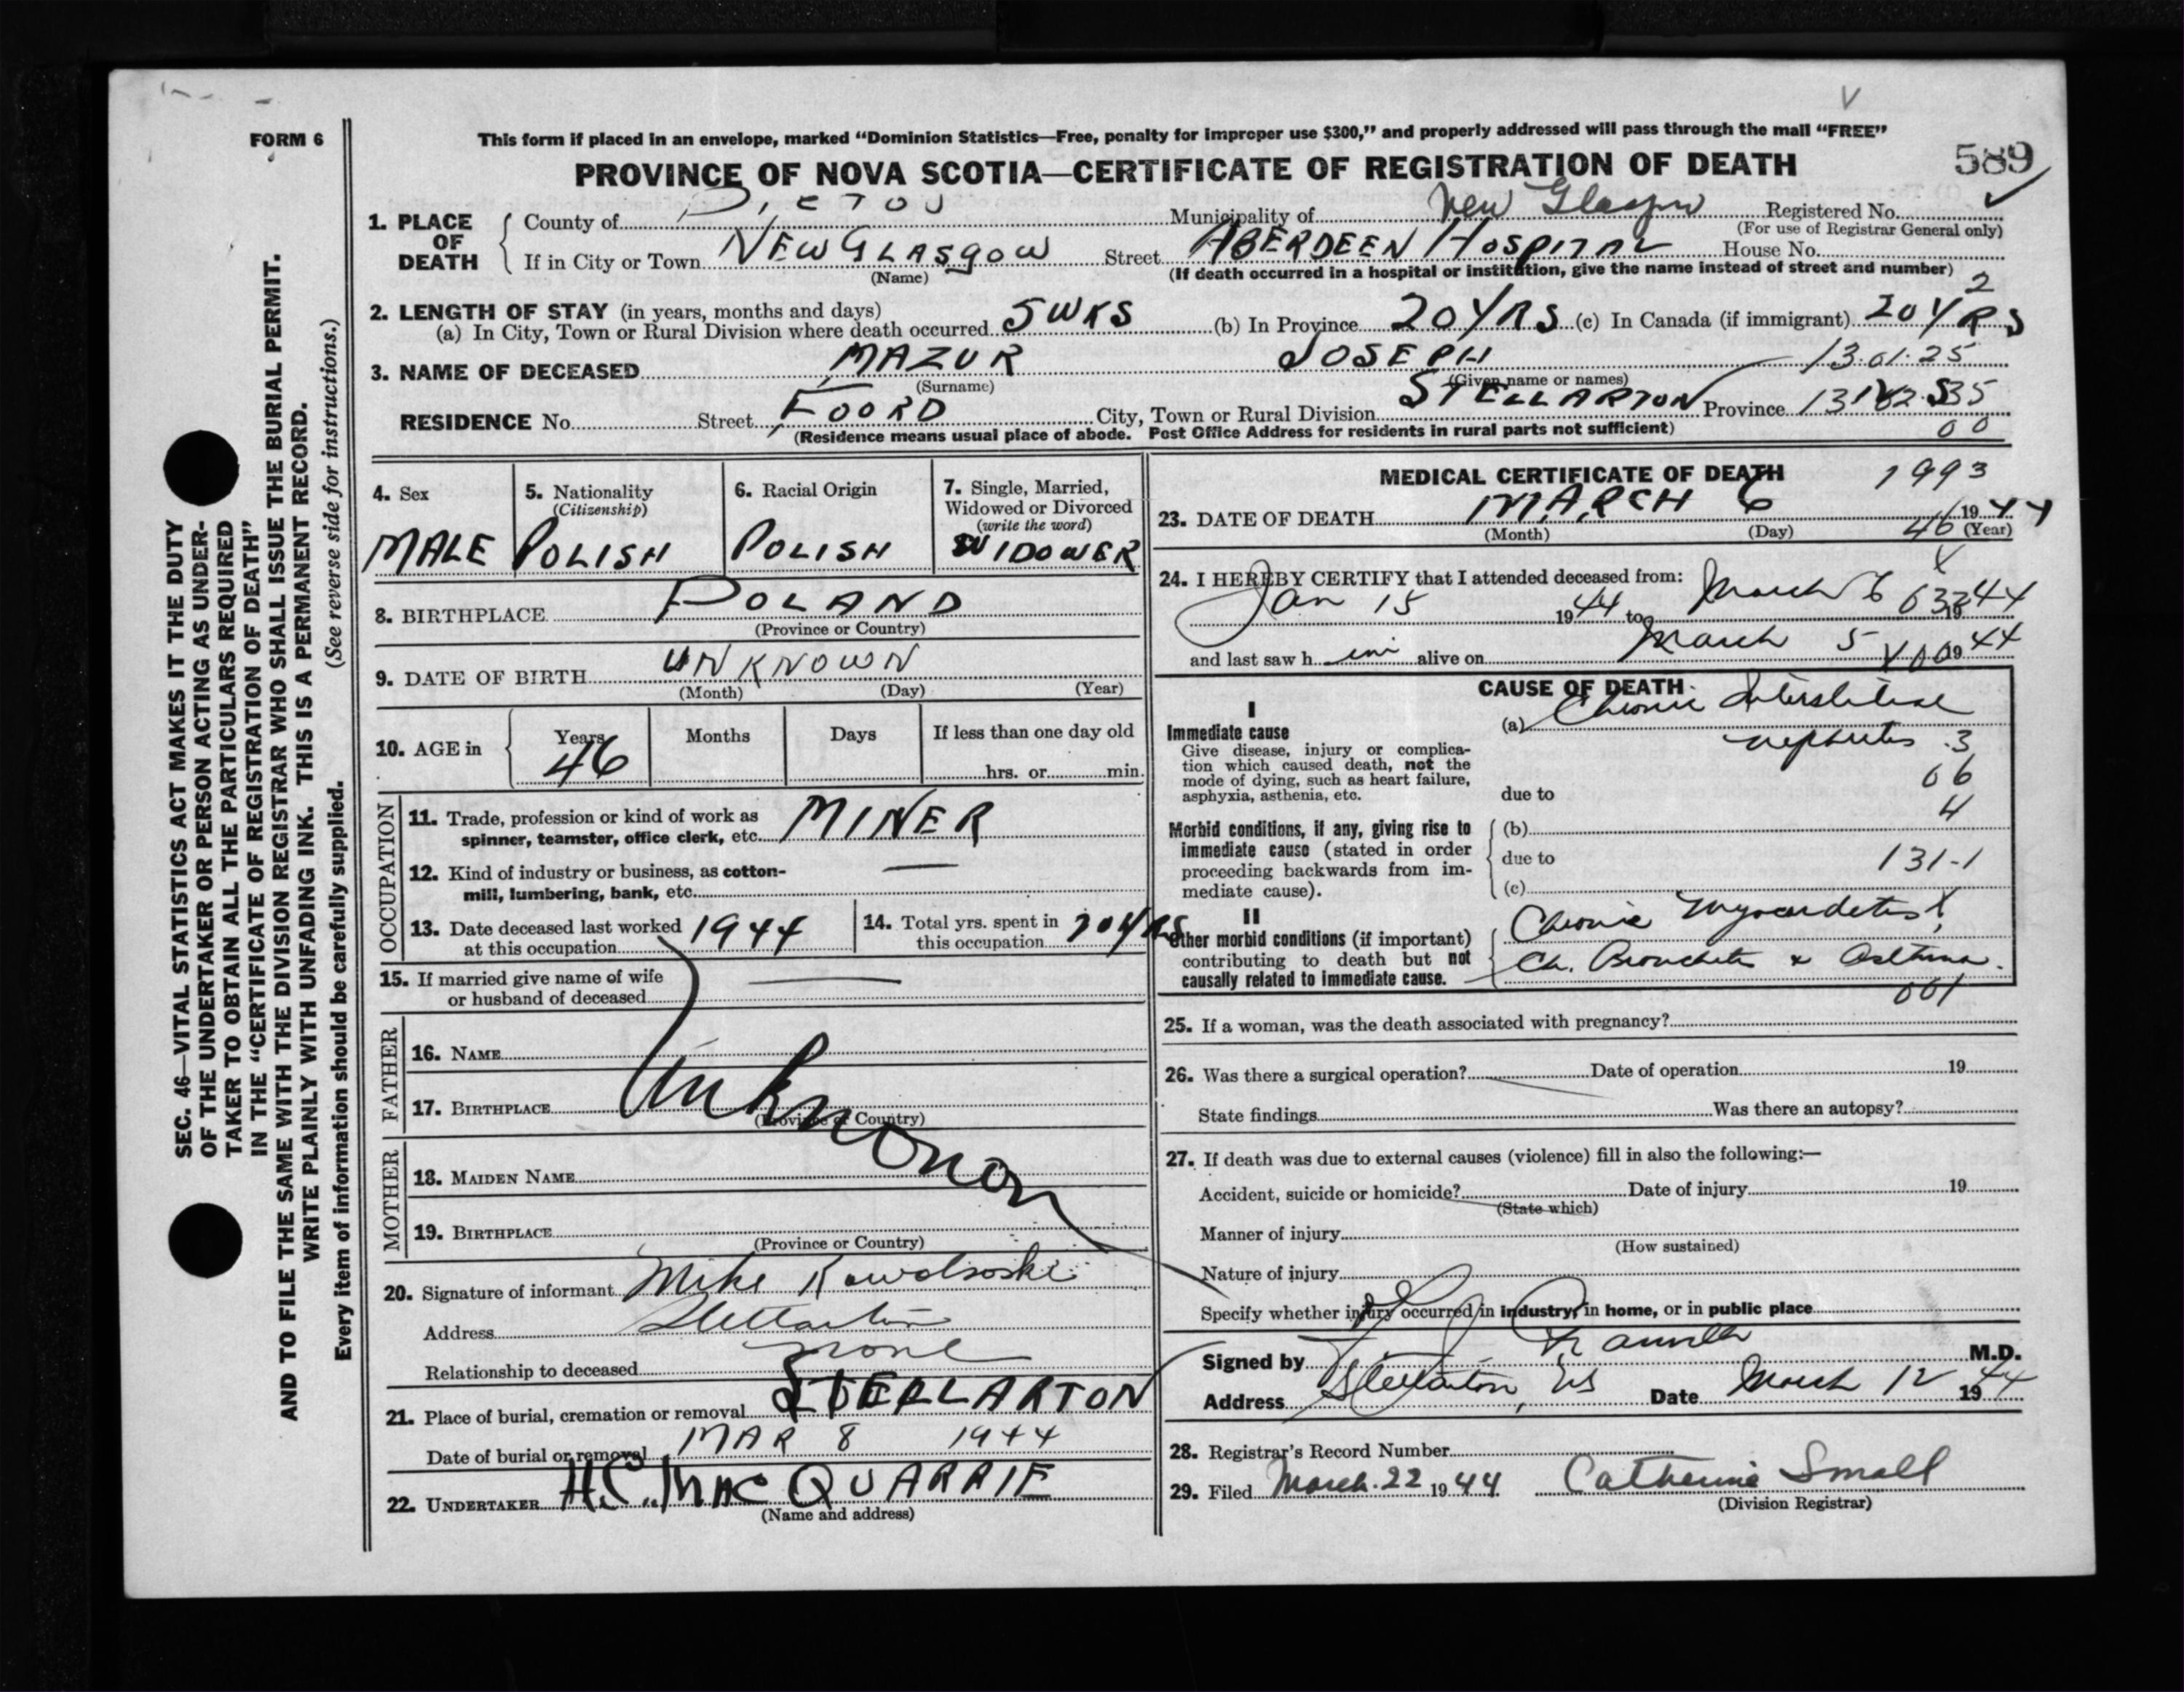 FORM 6
This form if placed in an envelope, marked “Dominion Statistics—Free, penalty for improper use $300,” and properly addressed will pass through the mail “FREE”
PROVINCE OF NOVA SCOTIA—CERTIFICATE OF REGISTRATION OF DEATH
589
1. PLACE OF DEATH
County of PICTOU Municipality of New Glasgow Registered No.
(For use of Registrar General only)
If in City or Town NEW GLASGOW Street ABERDEEN HOSPITAL House No.
(Name) (If death occurred in a hospital or institution, give the name instead of street and number)
2
2. LENGTH OF STAY (in years, months and days)
(a) In City, Town or Rural Division where death occurred 5 WKS (b) In Province 20 YRS (c) In Canada (if immigrant) 20 YRS
3. NAME OF DECEASED MAZUR JOSEPH 13.01.25
(Surname) (Given name or names)
RESIDENCE No. Street FOORD City, Town or Rural Division STELLARTON Province
(Residence means usual place of abode. Post Office Address for residents in rural parts not sufficient)
00
4. Sex
MALE
5. Nationality
(Citizenship)
POLISH
6. Racial Origin
POLISH
7. Single, Married,
Widowed or Divorced
(write the word)
WIDOWER
8. BIRTHPLACE POLAND
(Province or Country)
9. DATE OF BIRTH UNKNOWN
(Month) (Day) (Year)
10. AGE in Years Months Days If less than one day old
46 hrs. or min.
OCCUPATION
11. Trade, profession or kind of work as
spinner, teamster, office clerk, etc. MINER
12. Kind of industry or business, as cotton-
mill, lumbering, bank, etc. —
13. Date deceased last worked
at this occupation 1944
14. Total yrs. spent in
this occupation 20 YRS
15. If married give name of wife
or husband of deceased —
FATHER
16. NAME
Unknown
17. BIRTHPLACE
(Province or Country)
MOTHER
18. MAIDEN NAME
19. BIRTHPLACE
(Province or Country)
20. Signature of informant Mike
Address Stellarton
Relationship to deceased none
21. Place of burial, cremation or removal STELLARTON
Date of burial or removal MAR 8 1944
22. UNDERTAKER H.C. MACQUARRIE
(Name and address)
MEDICAL CERTIFICATE OF DEATH
1993
23. DATE OF DEATH MARCH 6 1944
(Month) (Day) (Year)
46
24. I HEREBY CERTIFY that I attended deceased from:
Jan 15 1944 to March 6 1944
and last saw h im alive on March 5 1944
CAUSE OF DEATH
I
Immediate cause
Give disease, injury or complica-
tion which caused death, not the
mode of dying, such as heart failure,
asphyxia, asthenia, etc.
(a) Chronic Interstitial
nephritis 3
06
due to
4
Morbid conditions, if any, giving rise to
immediate cause (stated in order
proceeding backwards from im-
mediate cause).
(b)
due to 131-1
(c)
II
Other morbid conditions (if important)
contributing to death but not
causally related to immediate cause.
Chronic Myocarditis
Ch. Bronchitis & Asthma.
001
25. If a woman, was the death associated with pregnancy?
26. Was there a surgical operation? Date of operation 19
State findings Was there an autopsy?
27. If death was due to external causes (violence) fill in also the following:—
Accident, suicide or homicide? Date of injury 19
(State which)
Manner of injury
(How sustained)
Nature of injury
Specify whether injury occurred in industry, in home, or in public place
Signed by M.D.
Address Stellarton, NS Date March 12 1944
28. Registrar's Record Number
29. Filed March 22 1944 Catherine Small
(Division Registrar)
SEC. 46—VITAL STATISTICS ACT MAKES IT THE DUTY
OF THE UNDERTAKER OR PERSON ACTING AS UNDER-
TAKER TO OBTAIN ALL THE PARTICULARS REQUIRED
IN THE “CERTIFICATE OF REGISTRATION OF DEATH”
AND TO FILE THE SAME WITH THE DIVISION REGISTRAR WHO SHALL ISSUE THE BURIAL PERMIT.
WRITE PLAINLY WITH UNFADING INK. THIS IS A PERMANENT RECORD.
Every item of information should be carefully supplied. (See reverse side for instructions.)